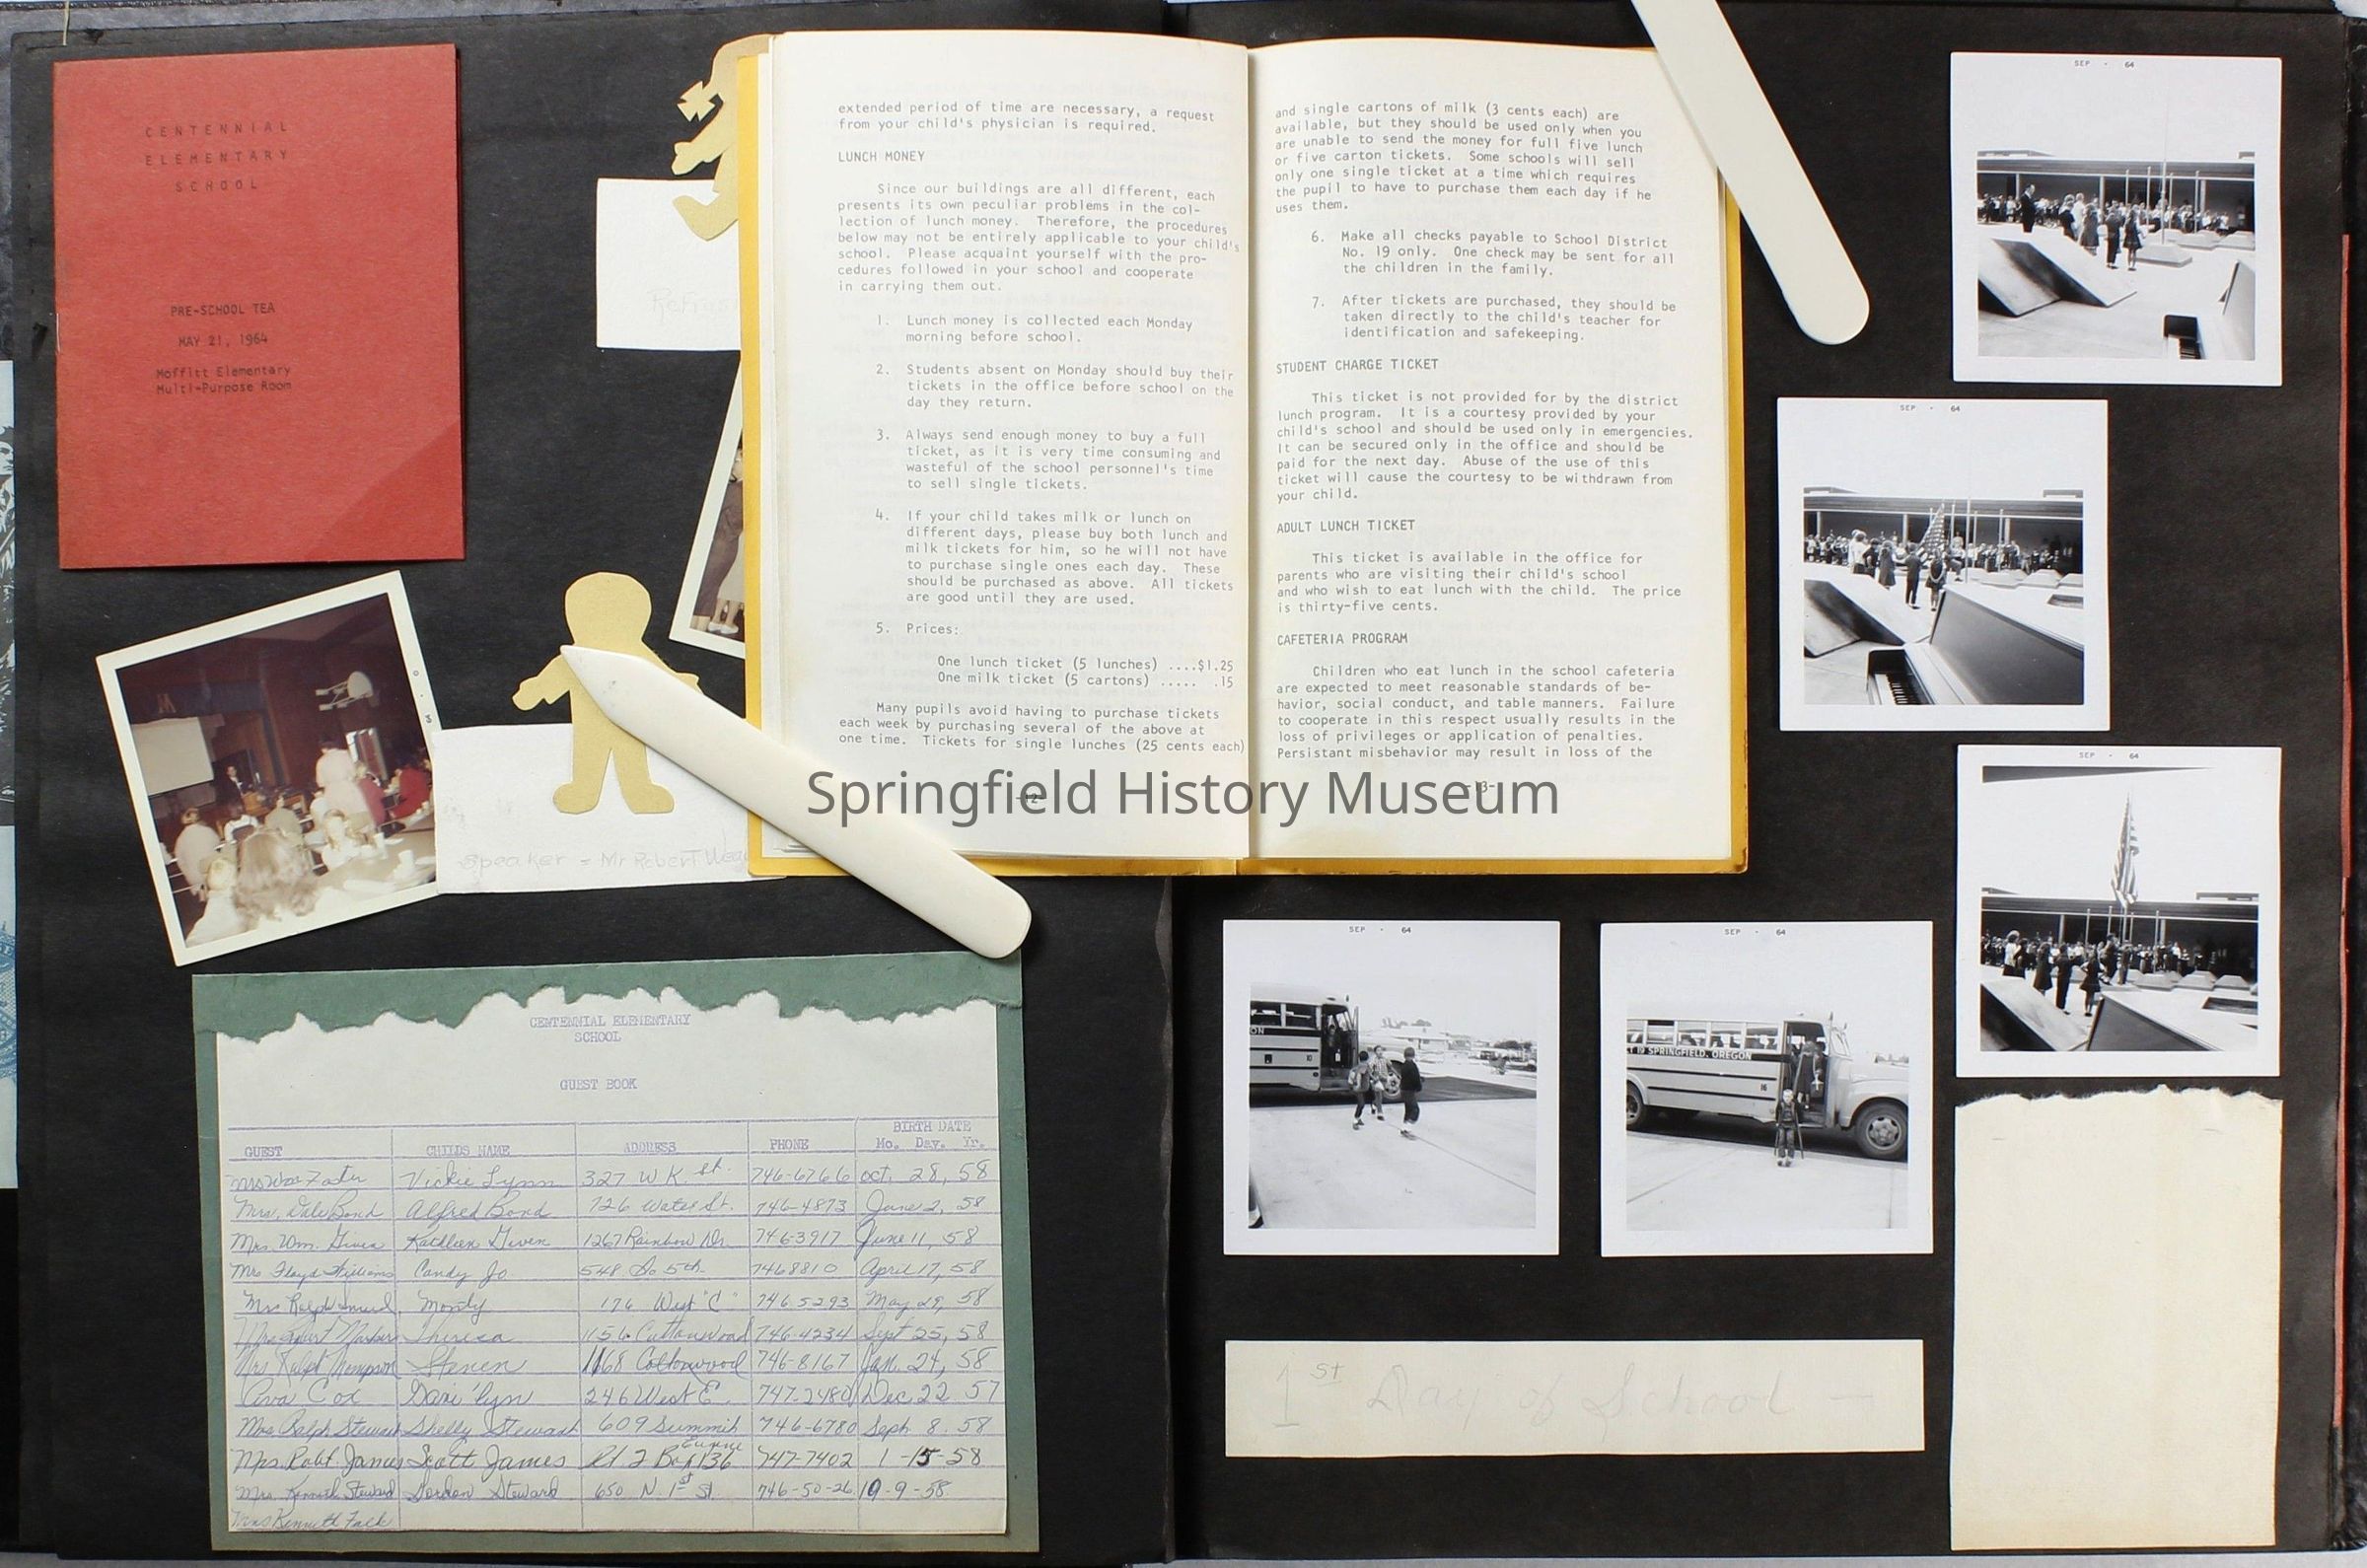 CENTENNIAL
ELEMENTARY
SCHOOL
PRE-SCHOOL TEA
MAY 21, 1964
Moffitt Elementary
Multi-Purpose Room
Speaker = Mr Robert
extended period of time are necessary, a request
from your child's physician is required.
LUNCH MONEY
Since our buildings are all different, each
presents its own peculiar problems in the col-
lection of lunch money. Therefore, the procedures
below may not be entirely applicable to your child's
school. Please acquaint yourself with the pro-
cedures followed in your school and cooperate
in carrying them out.
1. Lunch money is collected each Monday
morning before school.
2. Students absent on Monday should buy their
tickets in the office before school on the
day they return.
3. Always send enough money to buy a full
ticket, as it is very time consuming and
wasteful of the school personnel's time
to sell single tickets.
4. If your child takes milk or lunch on
different days, please buy both lunch and
milk tickets for him, so he will not have
to purchase single ones each day. These
should be purchased as above. All tickets
are good until they are used.
5. Prices:
One lunch ticket (5 lunches) ....$1.25
One milk ticket (5 cartons) ..... .15
Many pupils avoid having to purchase tickets
each week by purchasing several of the above at
one time. Tickets for single lunches (25 cents each)
-12-
and single cartons of milk (3 cents each) are
available, but they should be used only when you
are unable to send the money for full five lunch
or five carton tickets. Some schools will sell
only one single ticket at a time which requires
the pupil to have to purchase them each day if he
uses them.
6. Make all checks payable to School District
No. 19 only. One check may be sent for all
the children in the family.
7. After tickets are purchased, they should be
taken directly to the child's teacher for
identification and safekeeping.
STUDENT CHARGE TICKET
This ticket is not provided for by the district
lunch program. It is a courtesy provided by your
child's school and should be used only in emergencies.
It can be secured only in the office and should be
paid for the next day. Abuse of the use of this
ticket will cause the courtesy to be withdrawn from
your child.
ADULT LUNCH TICKET
This ticket is available in the office for
parents who are visiting their child's school
and who wish to eat lunch with the child. The price
is thirty-five cents.
CAFETERIA PROGRAM
Children who eat lunch in the school cafeteria
are expected to meet reasonable standards of be-
havior, social conduct, and table manners. Failure
to cooperate in this respect usually results in the
loss of privileges or application of penalties.
Persistant misbehavior may result in loss of the
-13-
Springfield History Museum
SEP - 64
SEP - 64
SEP - 64
SEP - 64
SEP - 64
10
T 19 SPRINGFIELD, OREGON
16
1st Day of School -
CENTENNIAL ELEMENTARY
SCHOOL
GUEST BOOK
BIRTH DATE
GUEST CHILDS NAME ADDRESS PHONE Mo. Day. Yr.
Vickie Lynn 327 W K St. 746-6766 Oct. 28, 58
Mrs. Dale Bond Alfred Bond 726 Water St. 746-4873 June 2, 58
Mrs. Wm. Given Kathleen Given 1267 Rainbow Dr. 746-3917 June 11, 58
Mrs Floyd Williams Candy Jo 548 So 5th. 746 8810 April 17, 58
Mrs Ralph Monty 176 West "C" 746 5293 May 29, 58
Mrs Theresa 1156 Cottonwood 746-4234 Sept 25, 58
Mrs Ralph Thompson Steven 1168 Cottonwood 746-8167 Jan. 24, 58
Ava Cox 246 West E. 747-2480 Dec 22 57
Mrs Ralph Stewart Shelly Stewart 609 Summit 746-6780 Sept. 8. 58
Eugene
Mrs Robt. James Scott James Rt 2 Box 136 747-7402 1-15-58
Mrs. Kenneth Steward Gordon Steward 650 N. 1st St 746-50-26 10-9-58
Mrs Kenneth Falk